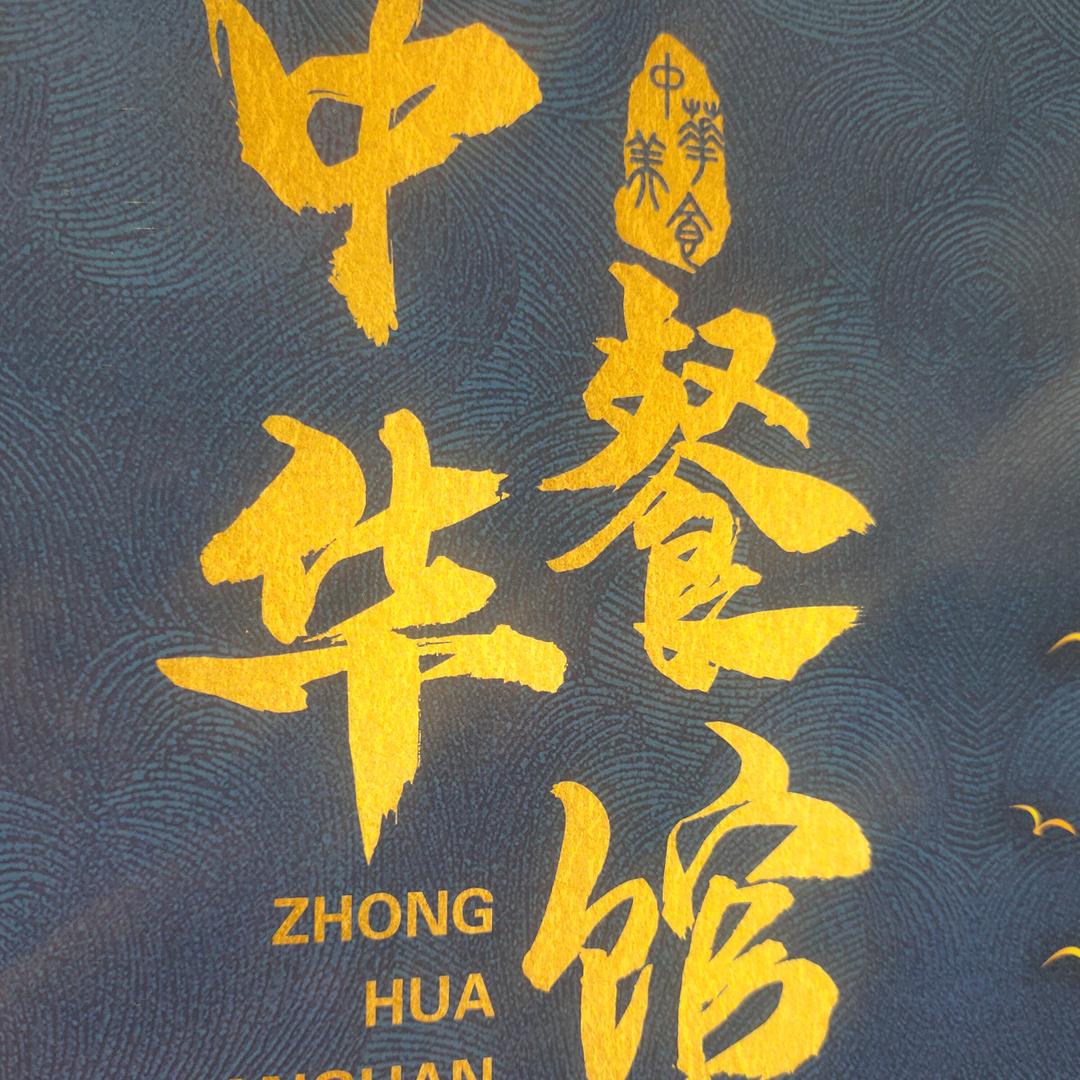 中华
餐馆
中華美食
ZHONG
HUA